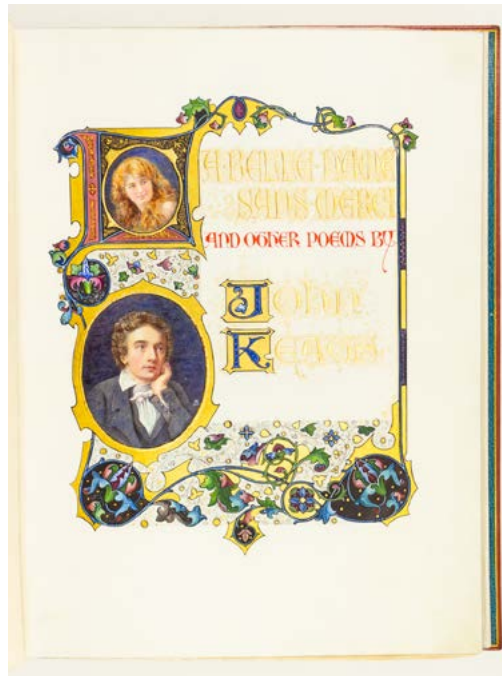 LA BELLE DAME
SANS MERCI
AND OTHER POEMS BY
JOHN
KEATS